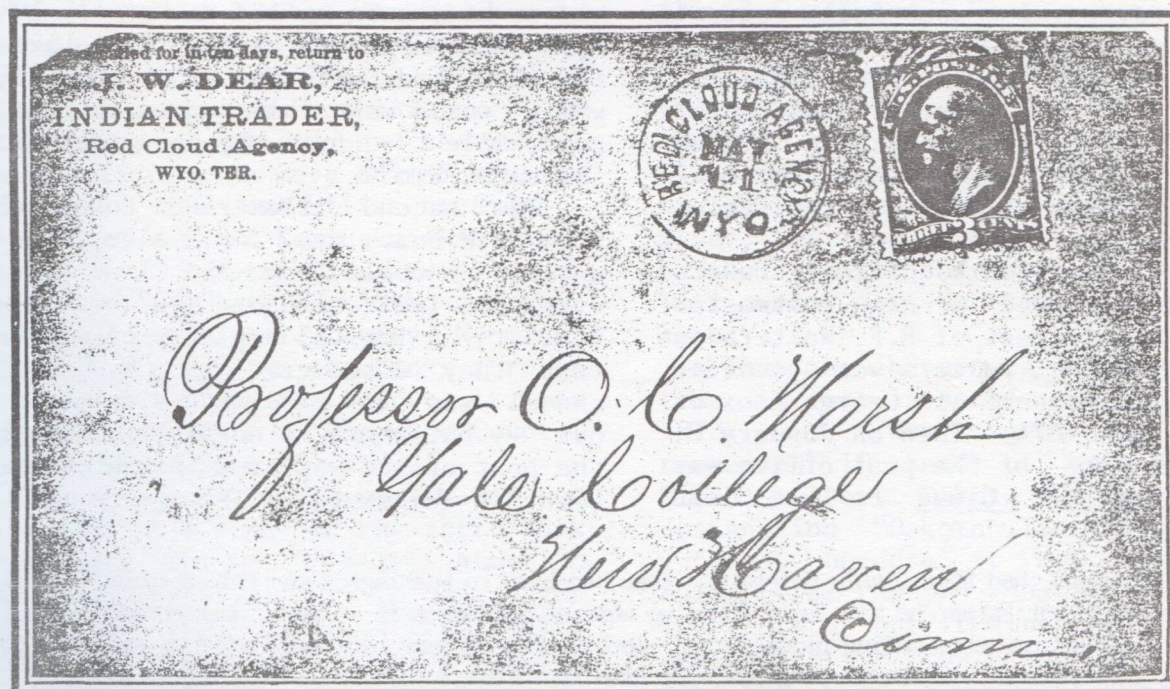 called for in ten days, return to
J. W. DEAR,
INDIAN TRADER,
Red Cloud Agency,
WYO. TER.
RED CLOUD AGENCY
MAY
WYO
U.S. POSTAGE
THREE 3 CENTS
Professor O. C. Marsh
Yale College
New Haven
Conn.